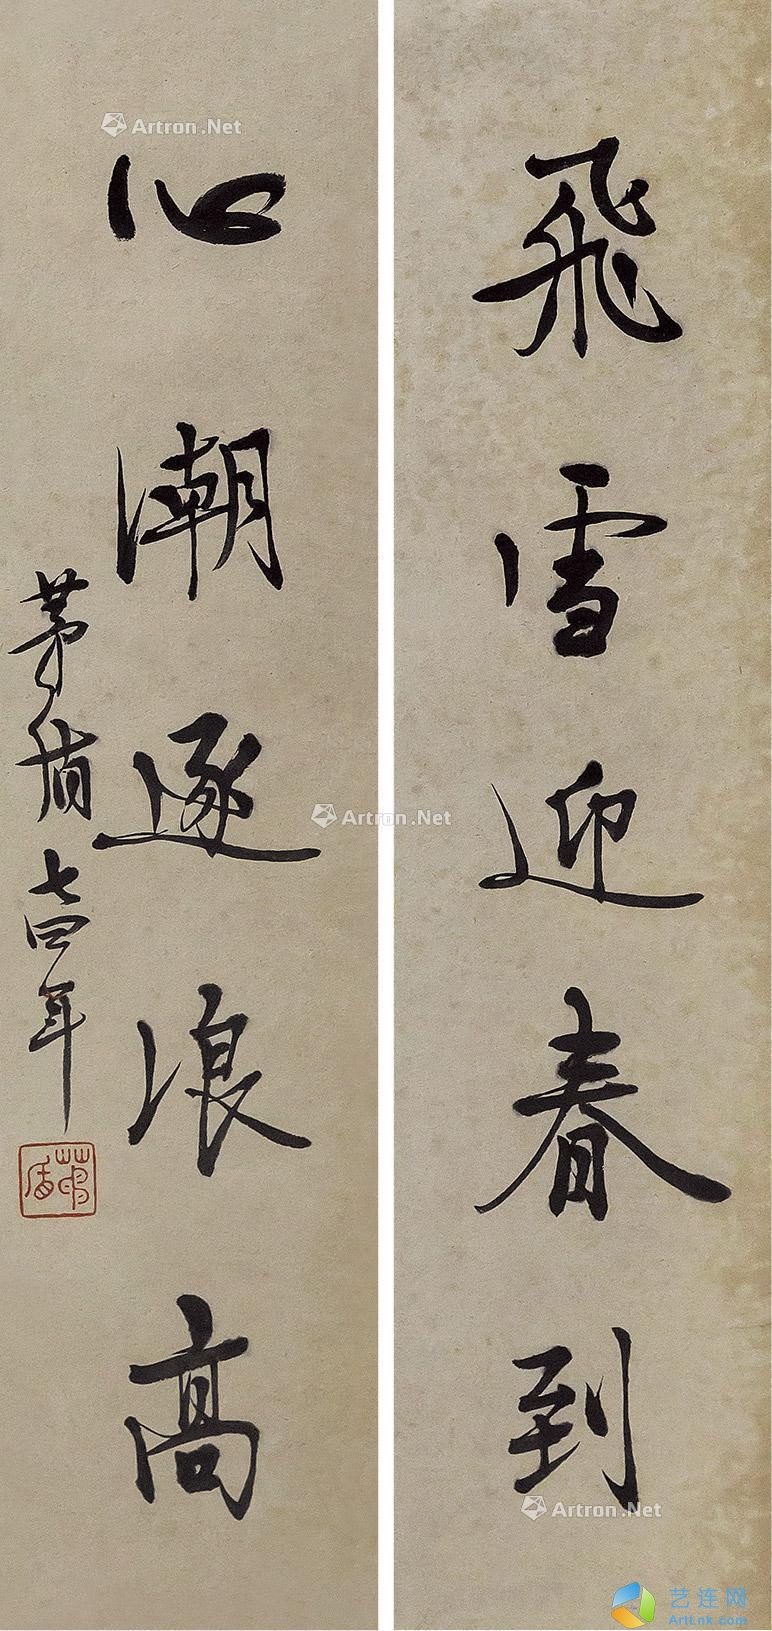 飛雪迎春到
心潮逐浪高
茅盾 七四年
茅盾
Artron.Net
Artron.Net
Artron.Net
艺连网
ArtLnk.com